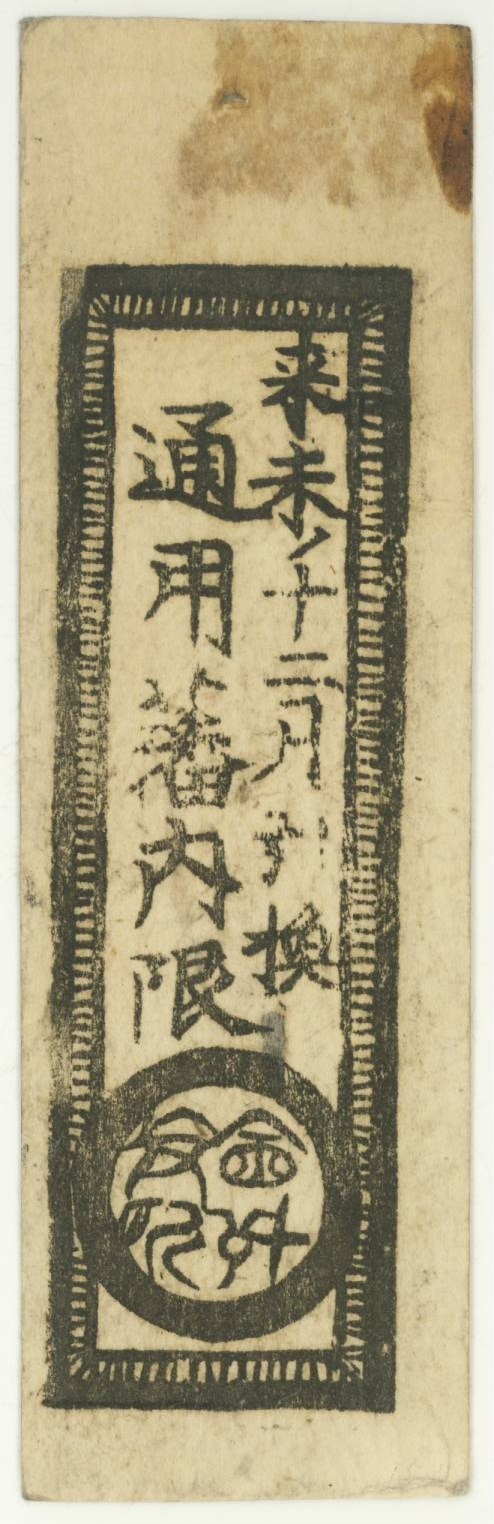 来未ノ十二月引換
通用藩内限